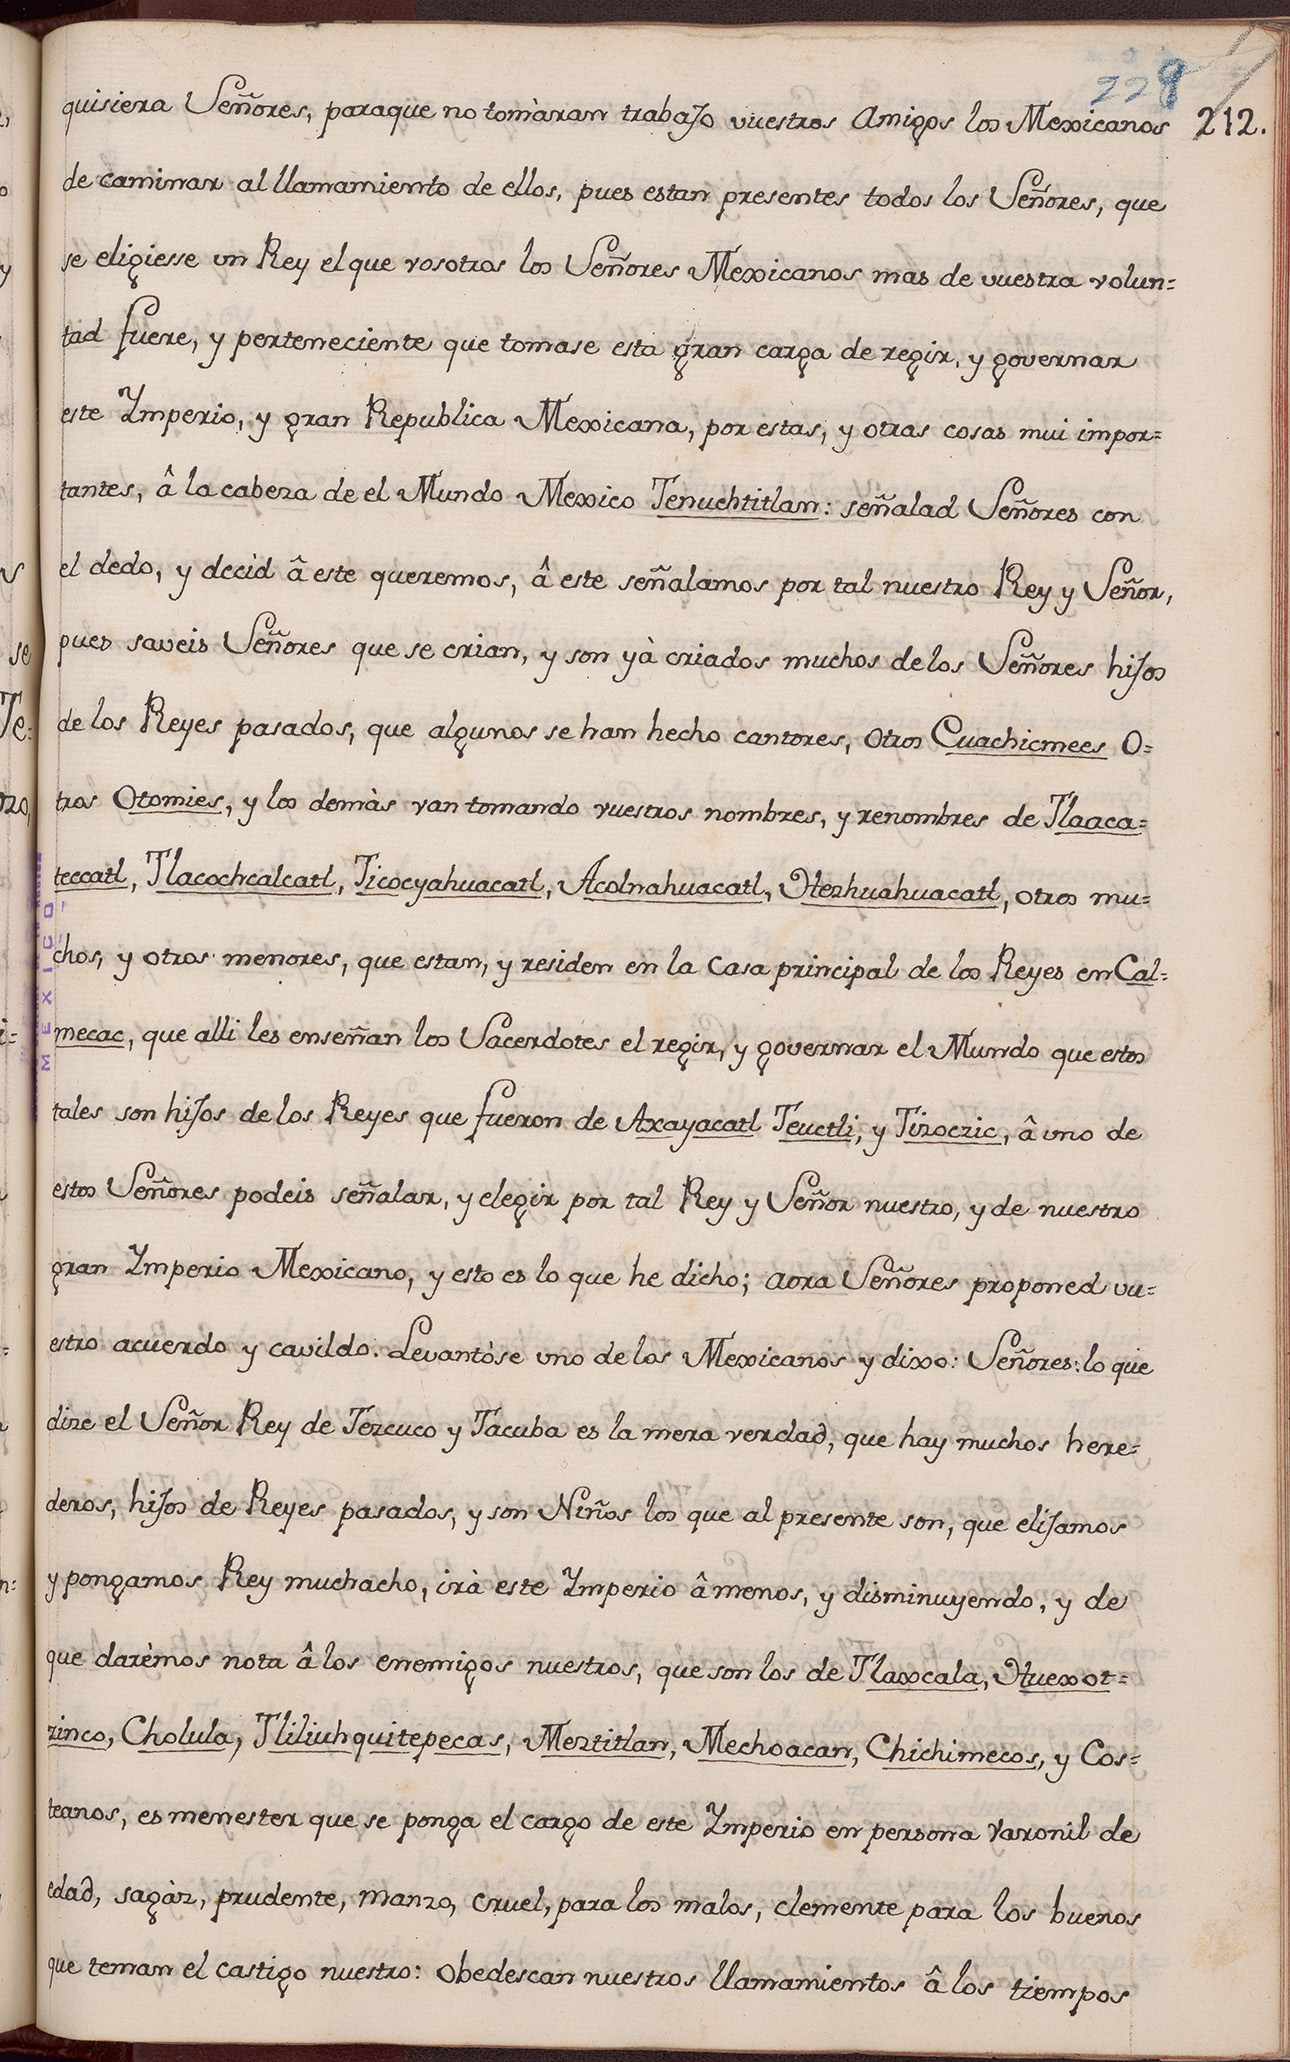 228
212.
quisiera Señores, paraque no tomàran trabajo vuestros Amigos los Mexicanos
de caminar al llamamiento de ellos, pues estan presentes todos los Señores, que
se eligiesse un Rey el que vosotros los Señores Mexicanos mas de vuestra volun=
tad fuere, y perteneciente que tomase esta gran carga de regir, y governar
este Ymperio, y gran Republica Mexicana, por estas, y otras cosas mui impor=
tantes, â la cabeza de el Mundo Mexico Tenuchtitlan: señalad Señores con
el dedo, y decid â este queremos, â este señalamos por tal nuestro Rey y Señor,
pues saveis Señores que se crian, y son yà criados muchos de los Señores hijos
de los Reyes pasados, que algunos se han hecho cantores, otros Cuachicmees O=
tros Otomies, y los demàs van tomando vuestros nombres, y renombres de Tlaaca=
teccatl, Tlacochcalcatl, Ticocyahuacatl, Acolnahuacatl, Hezhuahuacatl, otros mu=
chos, y otros menores, que estan, y residen en la Casa principal de los Reyes en Cal=
mecac, que alli les enseñan los Sacerdotes el regir, y governar el Mundo que estos
tales son hijos de los Reyes que fueron de Axayacatl Teuctli, y Tizoczic, â uno de
estos Señores podeis señalar, y elegir por tal Rey y Señor nuestro, y de nuestro
gran Ymperio Mexicano, y esto es lo que he dicho; aora Señores proponed vu=
estro acuerdo y cavildo. Levantòse uno de los Mexicanos y dixo: Señores: lo que
dize el Señor Rey de Tezcuco y Tacuba es la mera verdad, que hay muchos here=
deros, hijos de Reyes pasados, y son Niños los que al presente son, que elijamos
y pongamos Rey muchacho, irà este Ymperio â menos, y disminuyendo, y de
que darèmos nota â los enemigos nuestros, que son los de Tlaxcala, Huexot=
zinco, Cholula, Tliliuhquitepecas, Meztitlan, Mechoacan, Chichimecos, y Cos=
teanos, es menester que se ponga el cargo de este Ymperio en persona varonil de
edad, sagàz, prudente, manzo, cruel, para los malos, clemente para los buenos
que teman el castigo nuestro: obedescan nuestros llamamientos â los tiempos
MEXICO